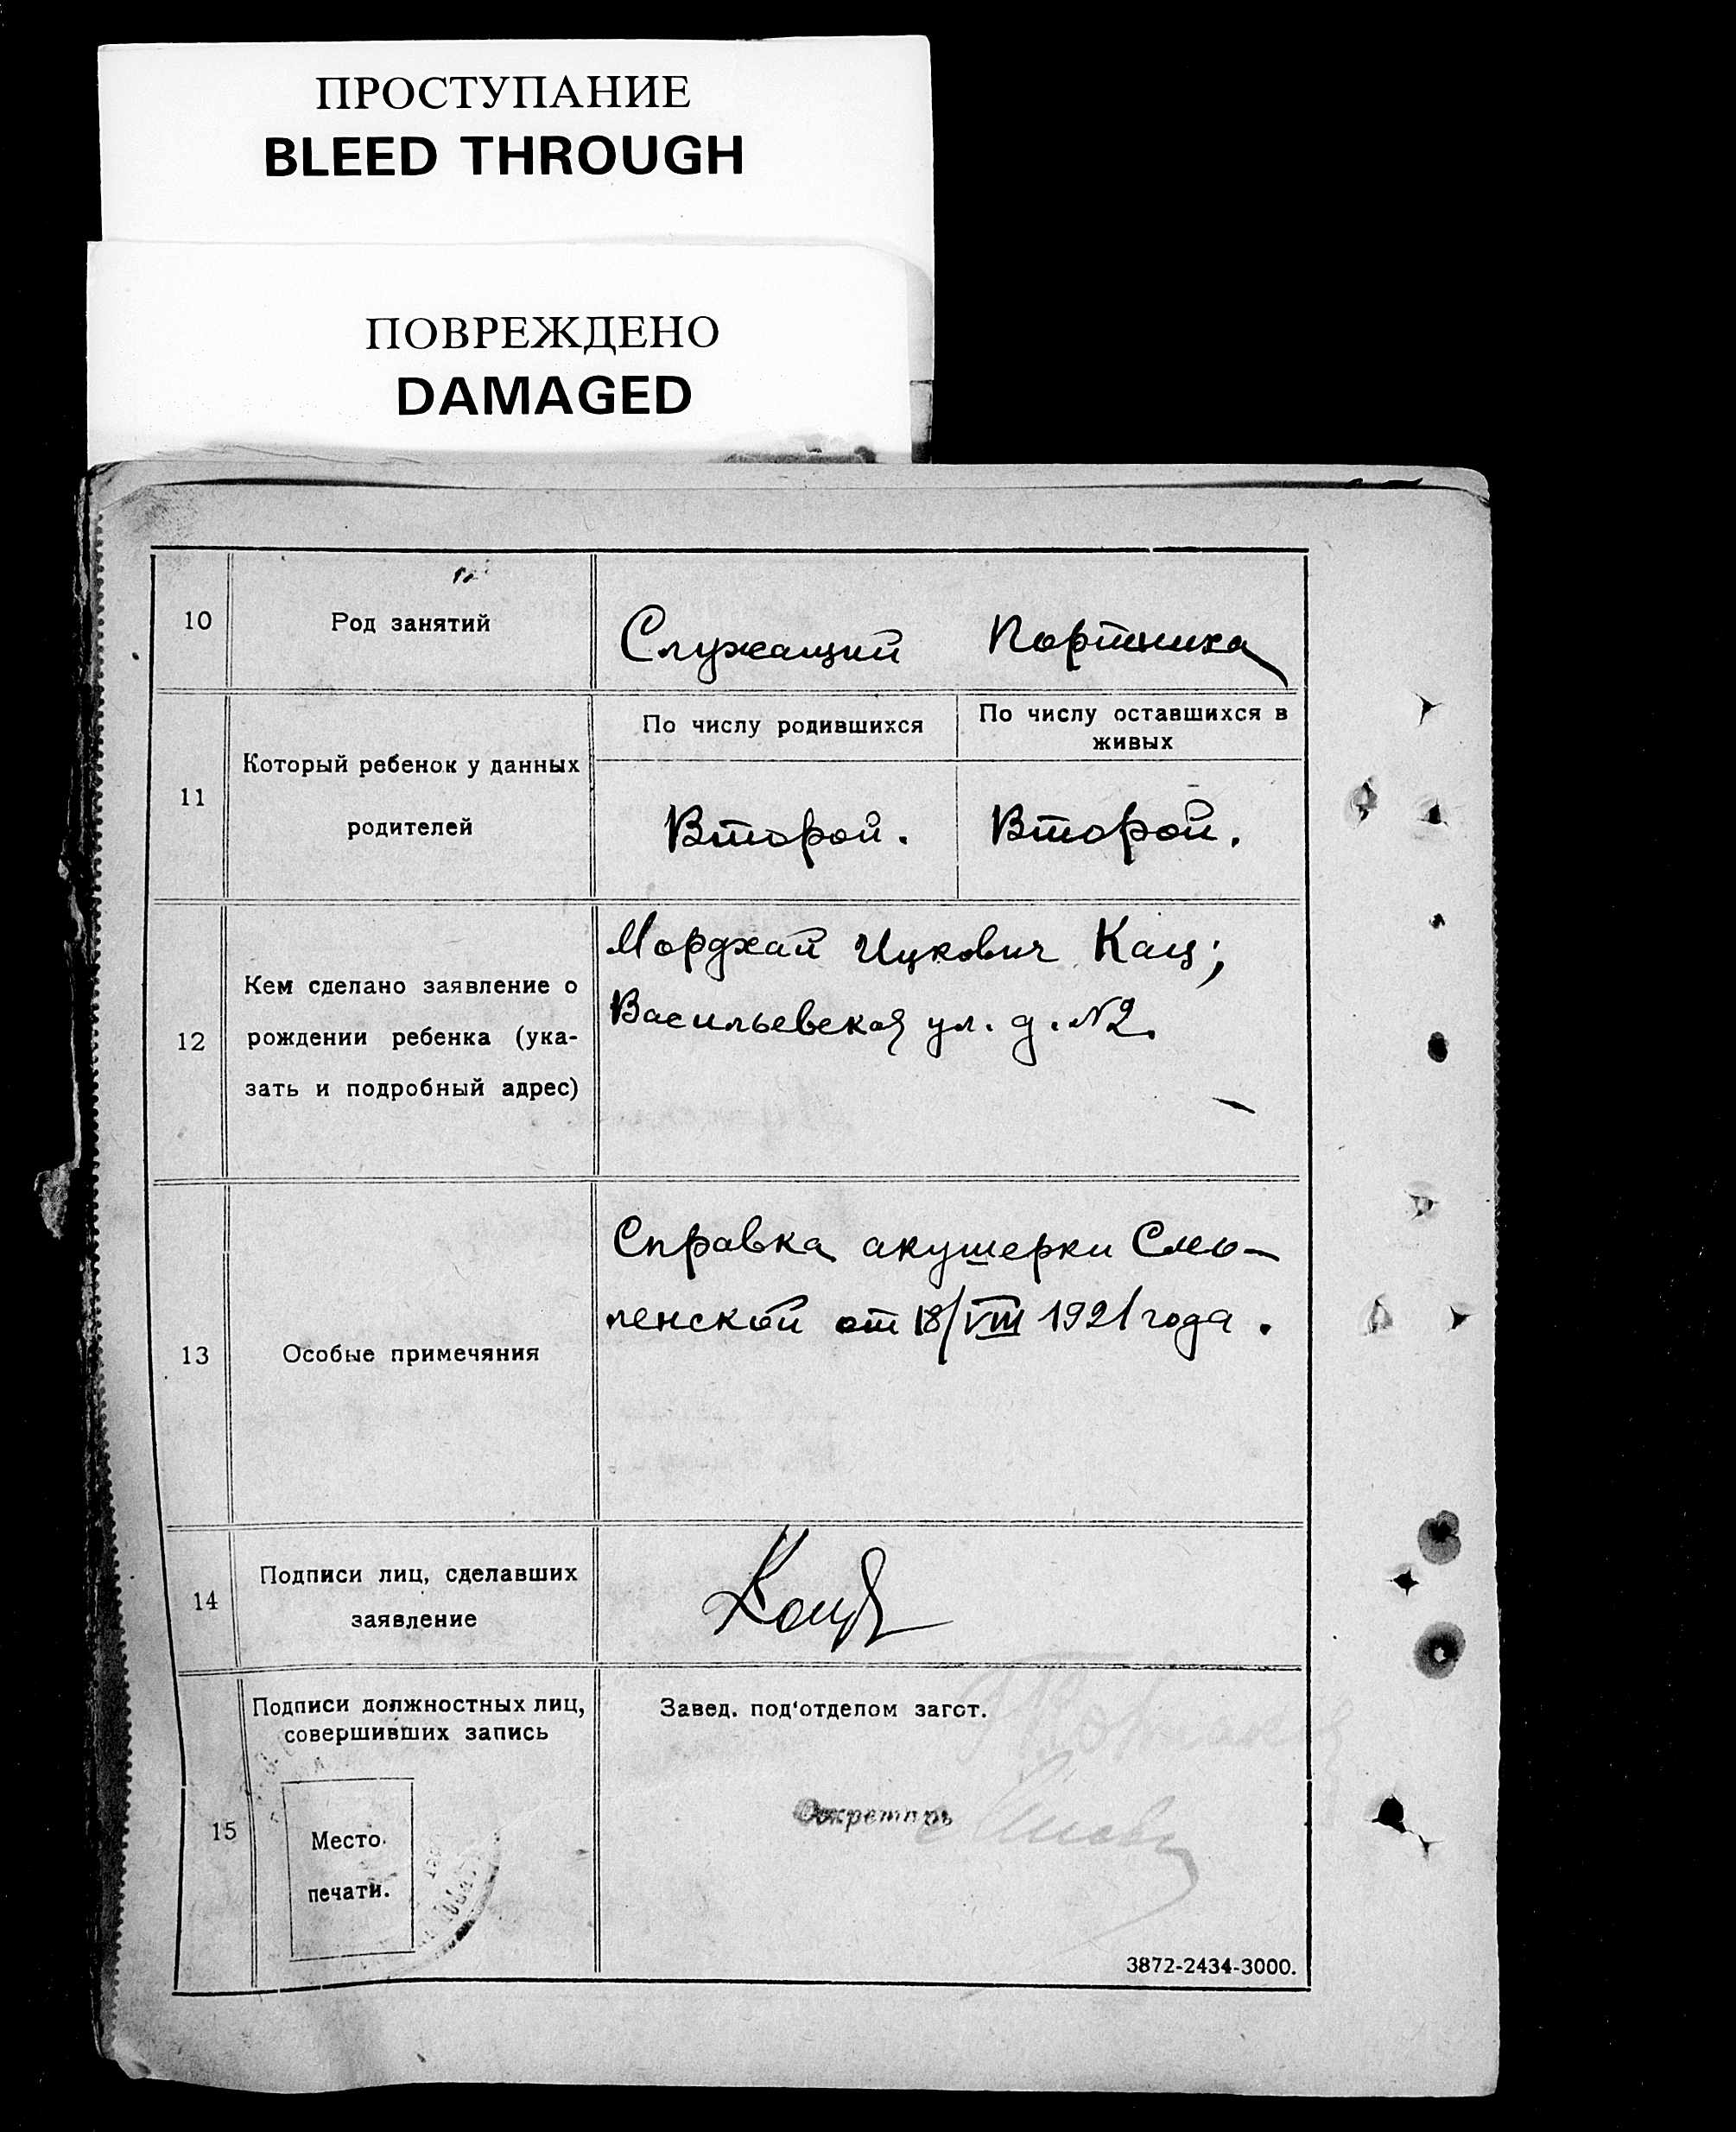 ПРОСТУПАНИЕ
BLEED THROUGH
ПОВРЕЖДЕНО
DAMAGED
10 Род занятий Служащий Портниха
11 Который ребенок у данных родителей
По числу родившихся
По числу оставшихся в
живых
Второй. Второй.
12 Кем сделано заявление о
рождении ребенка (ука-
зать и подробный адрес)
Мордхай Ицкович Кац;
Васильевская ул. д. №2.
13 Особые примечяния
Справка акушерки Смо-
ленской от 18/VIII 1921 года.
14 Подписи лиц, сделавших
заявление
Кац
15 Подписи должностных лиц,
совершивших запись
Место
печати.
Завед. под'отделом загст.
Секретарь
3872-2434-3000.